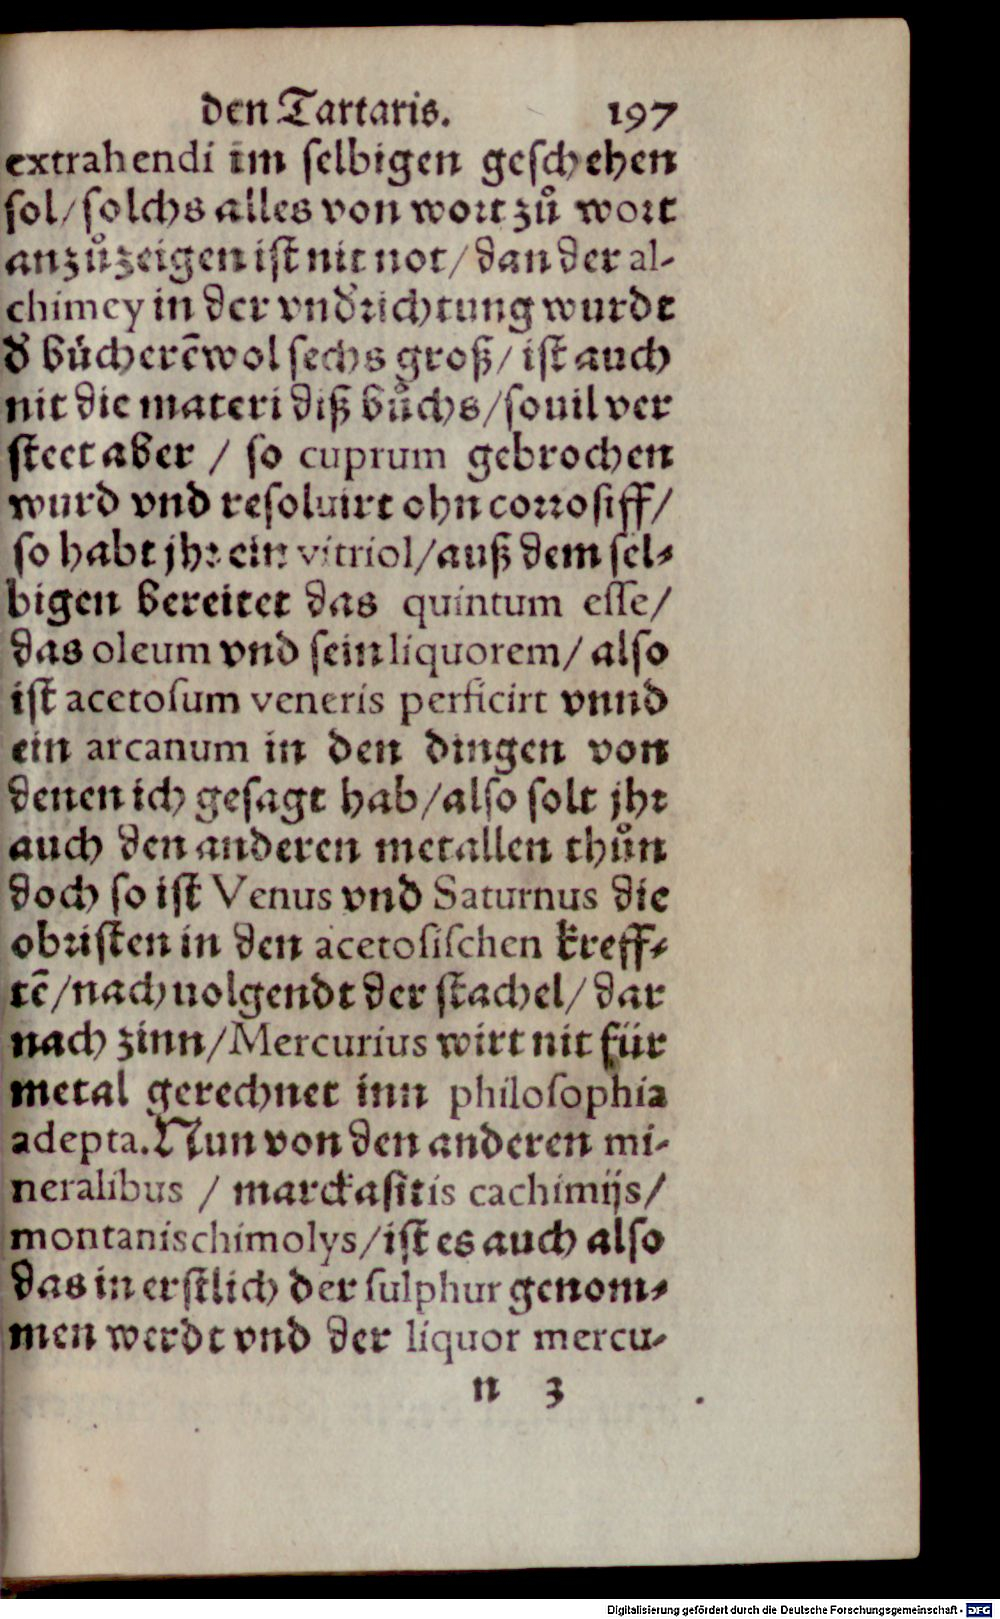 den Tartaris. 197
extrahendi im selbigen geschehen
sol/solchs alles von wort zů wort
anzůzeigen ist nit not/dan der al-
chimey in der vnd̕richtung wurdt
d̕ bücherē wol sechs groß/ist auch
nit die materi diß bůchs/souil ver
steet aber / so cuprum gebrochen
wurd vnd resoluirt ohn corrosiff/
so habt jhr ein vitriol/auß dem sel-
bigen bereitet das quintum esse/
das oleum vnd sein liquorem/also
ist acetosum veneris perficirt vnnd
ein arcanum in den dingen von
denen ich gesagt hab/also solt jhr
auch den anderen metallen thůn
doch so ist Venus vnd Saturnus die
obristen in den acetosischen kreff-
tē/nachuolgendt der stachel/dar
nach zinn/Mercurius wirt nit für
metal gerechnet inn philosophia
adepta. Nun von den anderen mi-
neralibus / marckasitis cachimijs/
montanischimolys/ist es auch also
das in erstlich der sulphur genom-
men werdt vnd der liquor mercu-
n 3
Digitalisierung gefördert durch die Deutsche Forschungsgemeinschaft - DFG